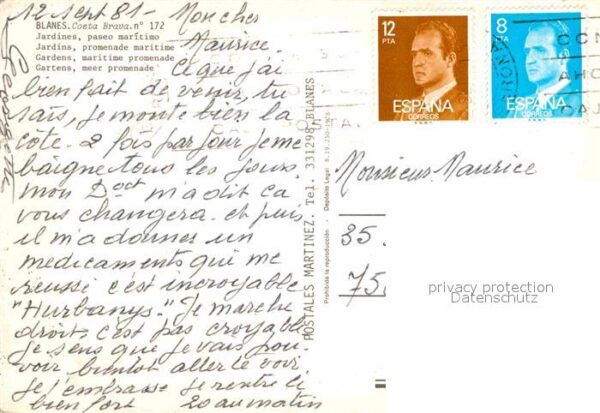 12 Sept 81 - Mon cher
Maurice.
BLANES. Costa Brava. nº 172
Jardines, paseo marítimo
Jardins, promenade maritime
Gardens, maritime promenade
Gartens, meer promenade
Ce que j'ai
bien fait de venir, tu
sais, je monte bien la
côte. 2 fois par jour je me
baigne tous les jours.
mon Doct m'a dit ca
vous changera. et puis
il m'a donner un
medicaments qui me
reussi c'est incroyable
"Hurbanys." Je marche
droit, c'est pas croyable
je sens que je vais pou-
voir bientot aller te voir
je t'embrasse je rentre le
bien fort 20 au matin
POSTALES MARTINEZ. Tel. 331298 BLANES
Prohibida la reproducción. - Depósito Legal
12
PTA
ESPAÑA
CORREOS
8
PTA
ESPAÑA
CORREOS
CON
AHO
CAJ
Monsieur Maurice
35.
75
privacy protection
Datenschutz